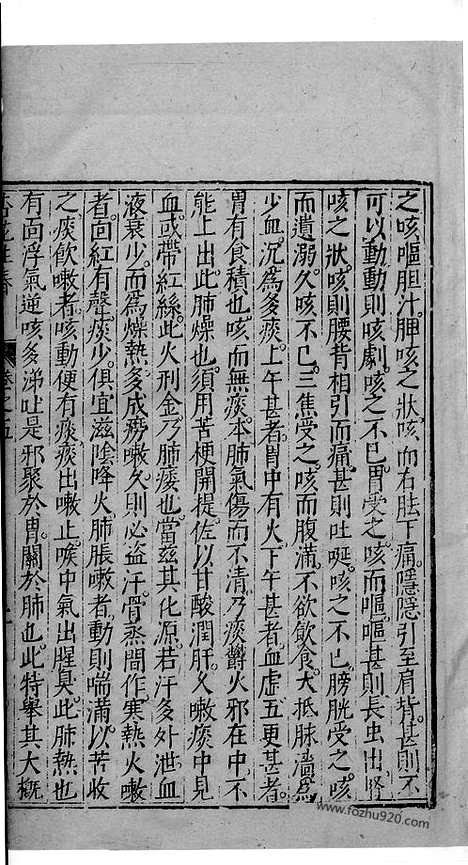 之咳嘔胆汁脾咳之狀咳而右胠下痛隱隱引至肩背甚則不
可以動動則咳劇咳之不已胃受之咳而嘔嘔甚則長虫出腎
咳之狀咳則腰背相引而痛甚則吐涎咳之不已膀胱受之咳
而遺溺久咳不已三焦受之咳而腹滿不欲飲食大抵脉濇爲
少血沉爲多痰上午甚者胃中有火下午甚者血虛五更甚者
胃有食積也咳而無痰本肺氣傷而不清乃痰欝火邪在中不
能上出此肺燥也須用苦梗開提佐以甘酸潤肝久嗽痰中見
血或帶紅絲此火刑金乃肺痿也當兹其化源若汗多外泄血
液衰少而爲燥熱多成癆嗽久則必盗汗骨蒸間作寒熱火嗽
者面紅有聲痰少俱宜滋陰降火肺脹嗽者動則喘滿以苦收
之痰飲嗽者咳動便有痰痰出嗽止喉中氣出腥臭此肺熱也
有面浮氣逆咳多涕吐是邪聚於胃關於肺也此特舉其大概
www.fozhu920.com